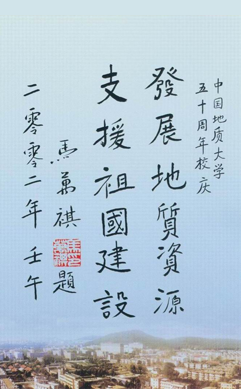 中国地质大学
五十周年校庆
發展地質資源
支援祖國建設
馬萬祺題
二零零二年壬午